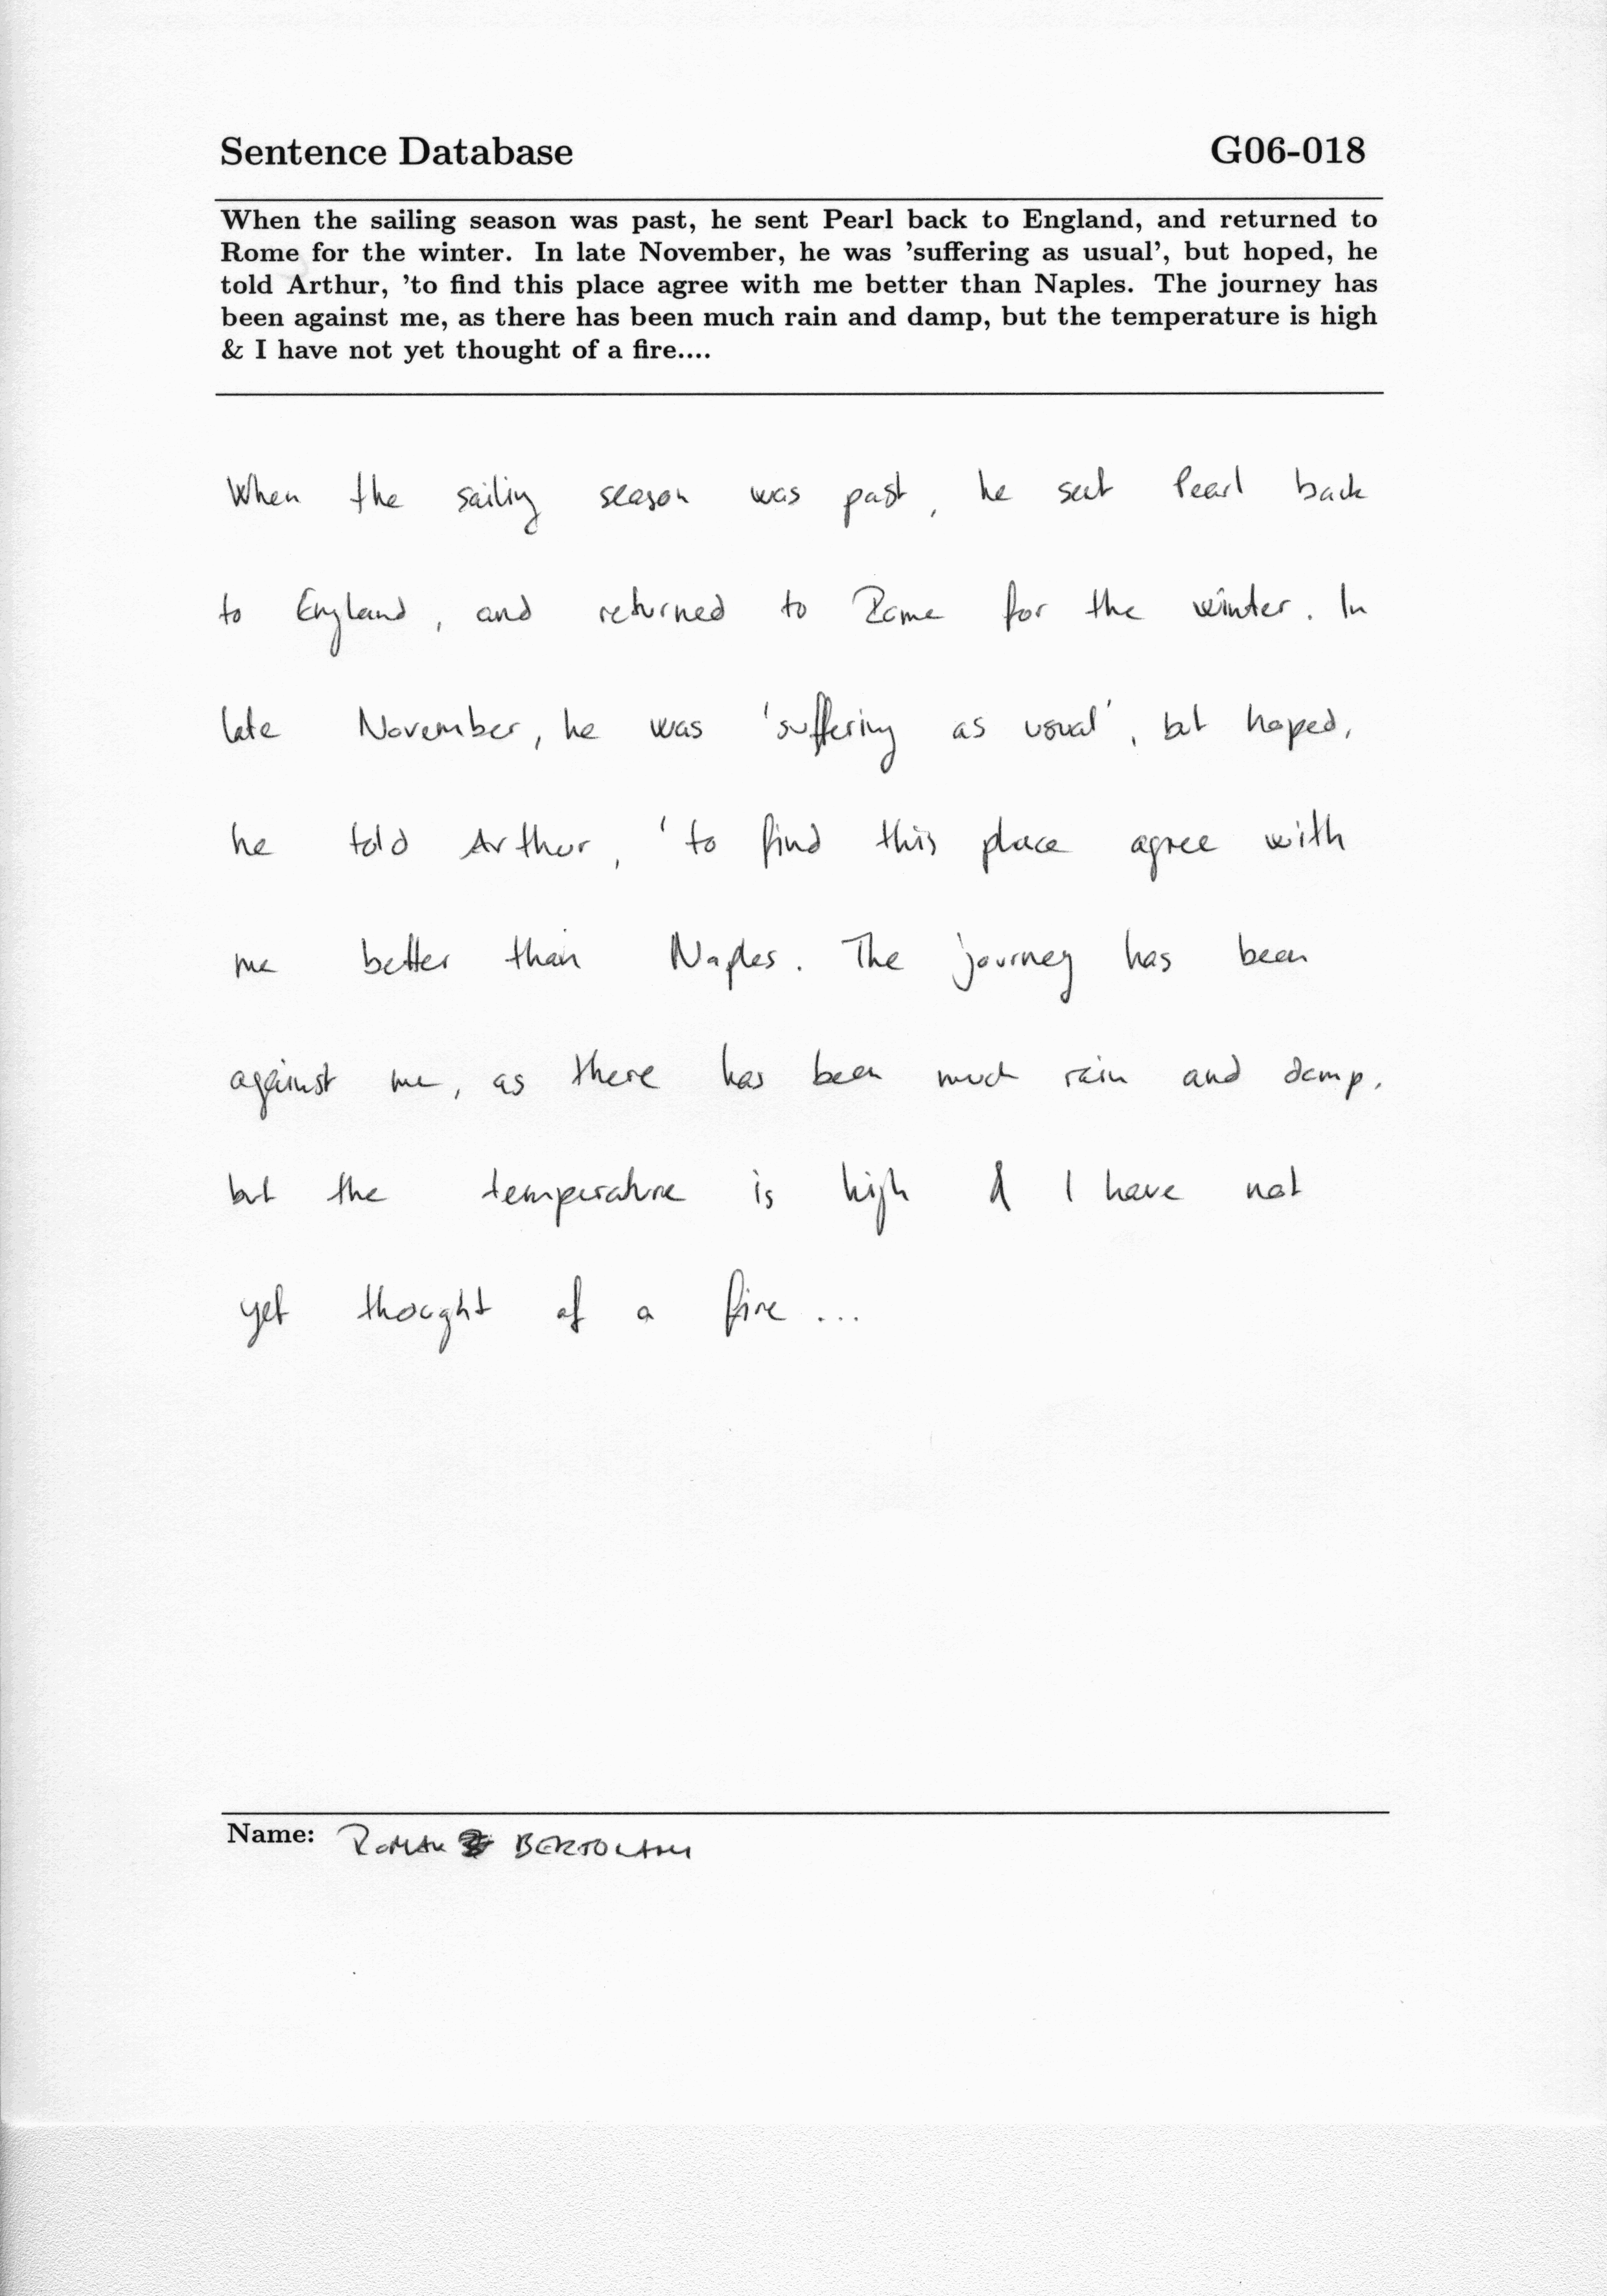 Sentence Database G06-018
When the sailing season was past, he sent Pearl back to England, and returned to
Rome for the winter. In late November, he was 'suffering as usual', but hoped, he
told Arthur, 'to find this place agree with me better than Naples. The journey has
been against me, as there has been much rain and damp, but the temperature is high
& I have not yet thought of a fire....
When the sailing season was past, he sent Pearl back
to England, and returned to Rome for the winter. In
late November, he was 'suffering as usual', but hoped,
he told Arthur, 'to find this place agree with
me better than Naples. The journey has been
against me, as there has been much rain and damp,
but the temperature is high & I have not
yet thought of a fire...
Name: ROMAN BERTOLAMI